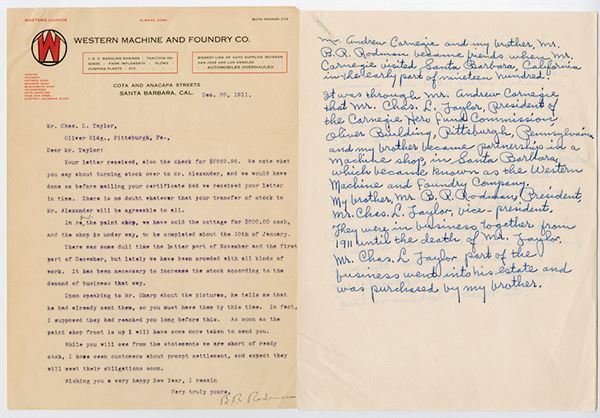 WESTERN GARAGE
ALWAYS OPEN
BOTH PHONES 274
W
WESTERN MACHINE AND FOUNDRY CO.
I. H. C. GASOLINE ENGINES : TRACTION ENGINES : FARM IMPLEMENTS : PLOWS : PUMPING PLANTS ETC.
BIGGEST LINE OF AUTO SUPPLIES BETWEEN SAN JOSE AND LOS ANGELES
AUTOMOBILES OVERHAULED
COTA AND ANACAPA STREETS
SANTA BARBARA, CAL.
Dec. 28, 1911.
Mr. Chas. L. Taylor,
Oliver Bldg., Pittsburgh, Pa.,
Dear Mr. Taylor:
Your letter received, also the check for We note what
you say about turning stock over to Mr. Alexander, and we would have
done so before mailing your certificate had we received your letter
in time. There is no doubt whatever that your transfer of stock to
Mr. Alexander will be agreeable to all.
the paint shop, we have sold the cottage for $200.00 cash,
and the shop is under way, to be completed about the 10th of January.
There was some dull time the latter part of November and the first
part of December, but lately we have been crowded with all kinds of
work. It has been necessary to increase the stock according to the
demand of business that way.
Upon speaking to Mr. Sharp about the pictures, he tells me that
he had already sent them, so you must have them by this time. In fact,
I supposed they had reached you long before this. As soon as the
paint shop front is up I will have some more taken to send you.
While you will see from the statements we are short of ready
cash, I have seen customers about prompt settlement, and expect they
will meet their obligations soon.
Wishing you a very happy New Year, I remain
Very truly yours,
B R Rodman
Mr. Andrew Carnegie and my brother, Mr.
B. R. Rodman became friends when Mr.
Carnegie visited Santa Barbara, California
in the early part of nineteen hundred.
It was through Mr. Andrew Carnegie
that Mr. Chas. L. Taylor, President of
the Carnegie Hero Fund Commission,
Oliver Building, Pittsburgh, Pennsylvania
and my brother became partnership in a
Machine shop, in Santa Barbara,
which became known as the Western
Machine and Foundry Company.
My brother, Mr. B. R. Rodman, President,
Mr. Chas. L. Taylor, vice-president.
They were in business together from
1911 until the death of Mr. Taylor.
Mr. Chas. L Taylor part of the
business went into his estate and
was purchased by my brother.